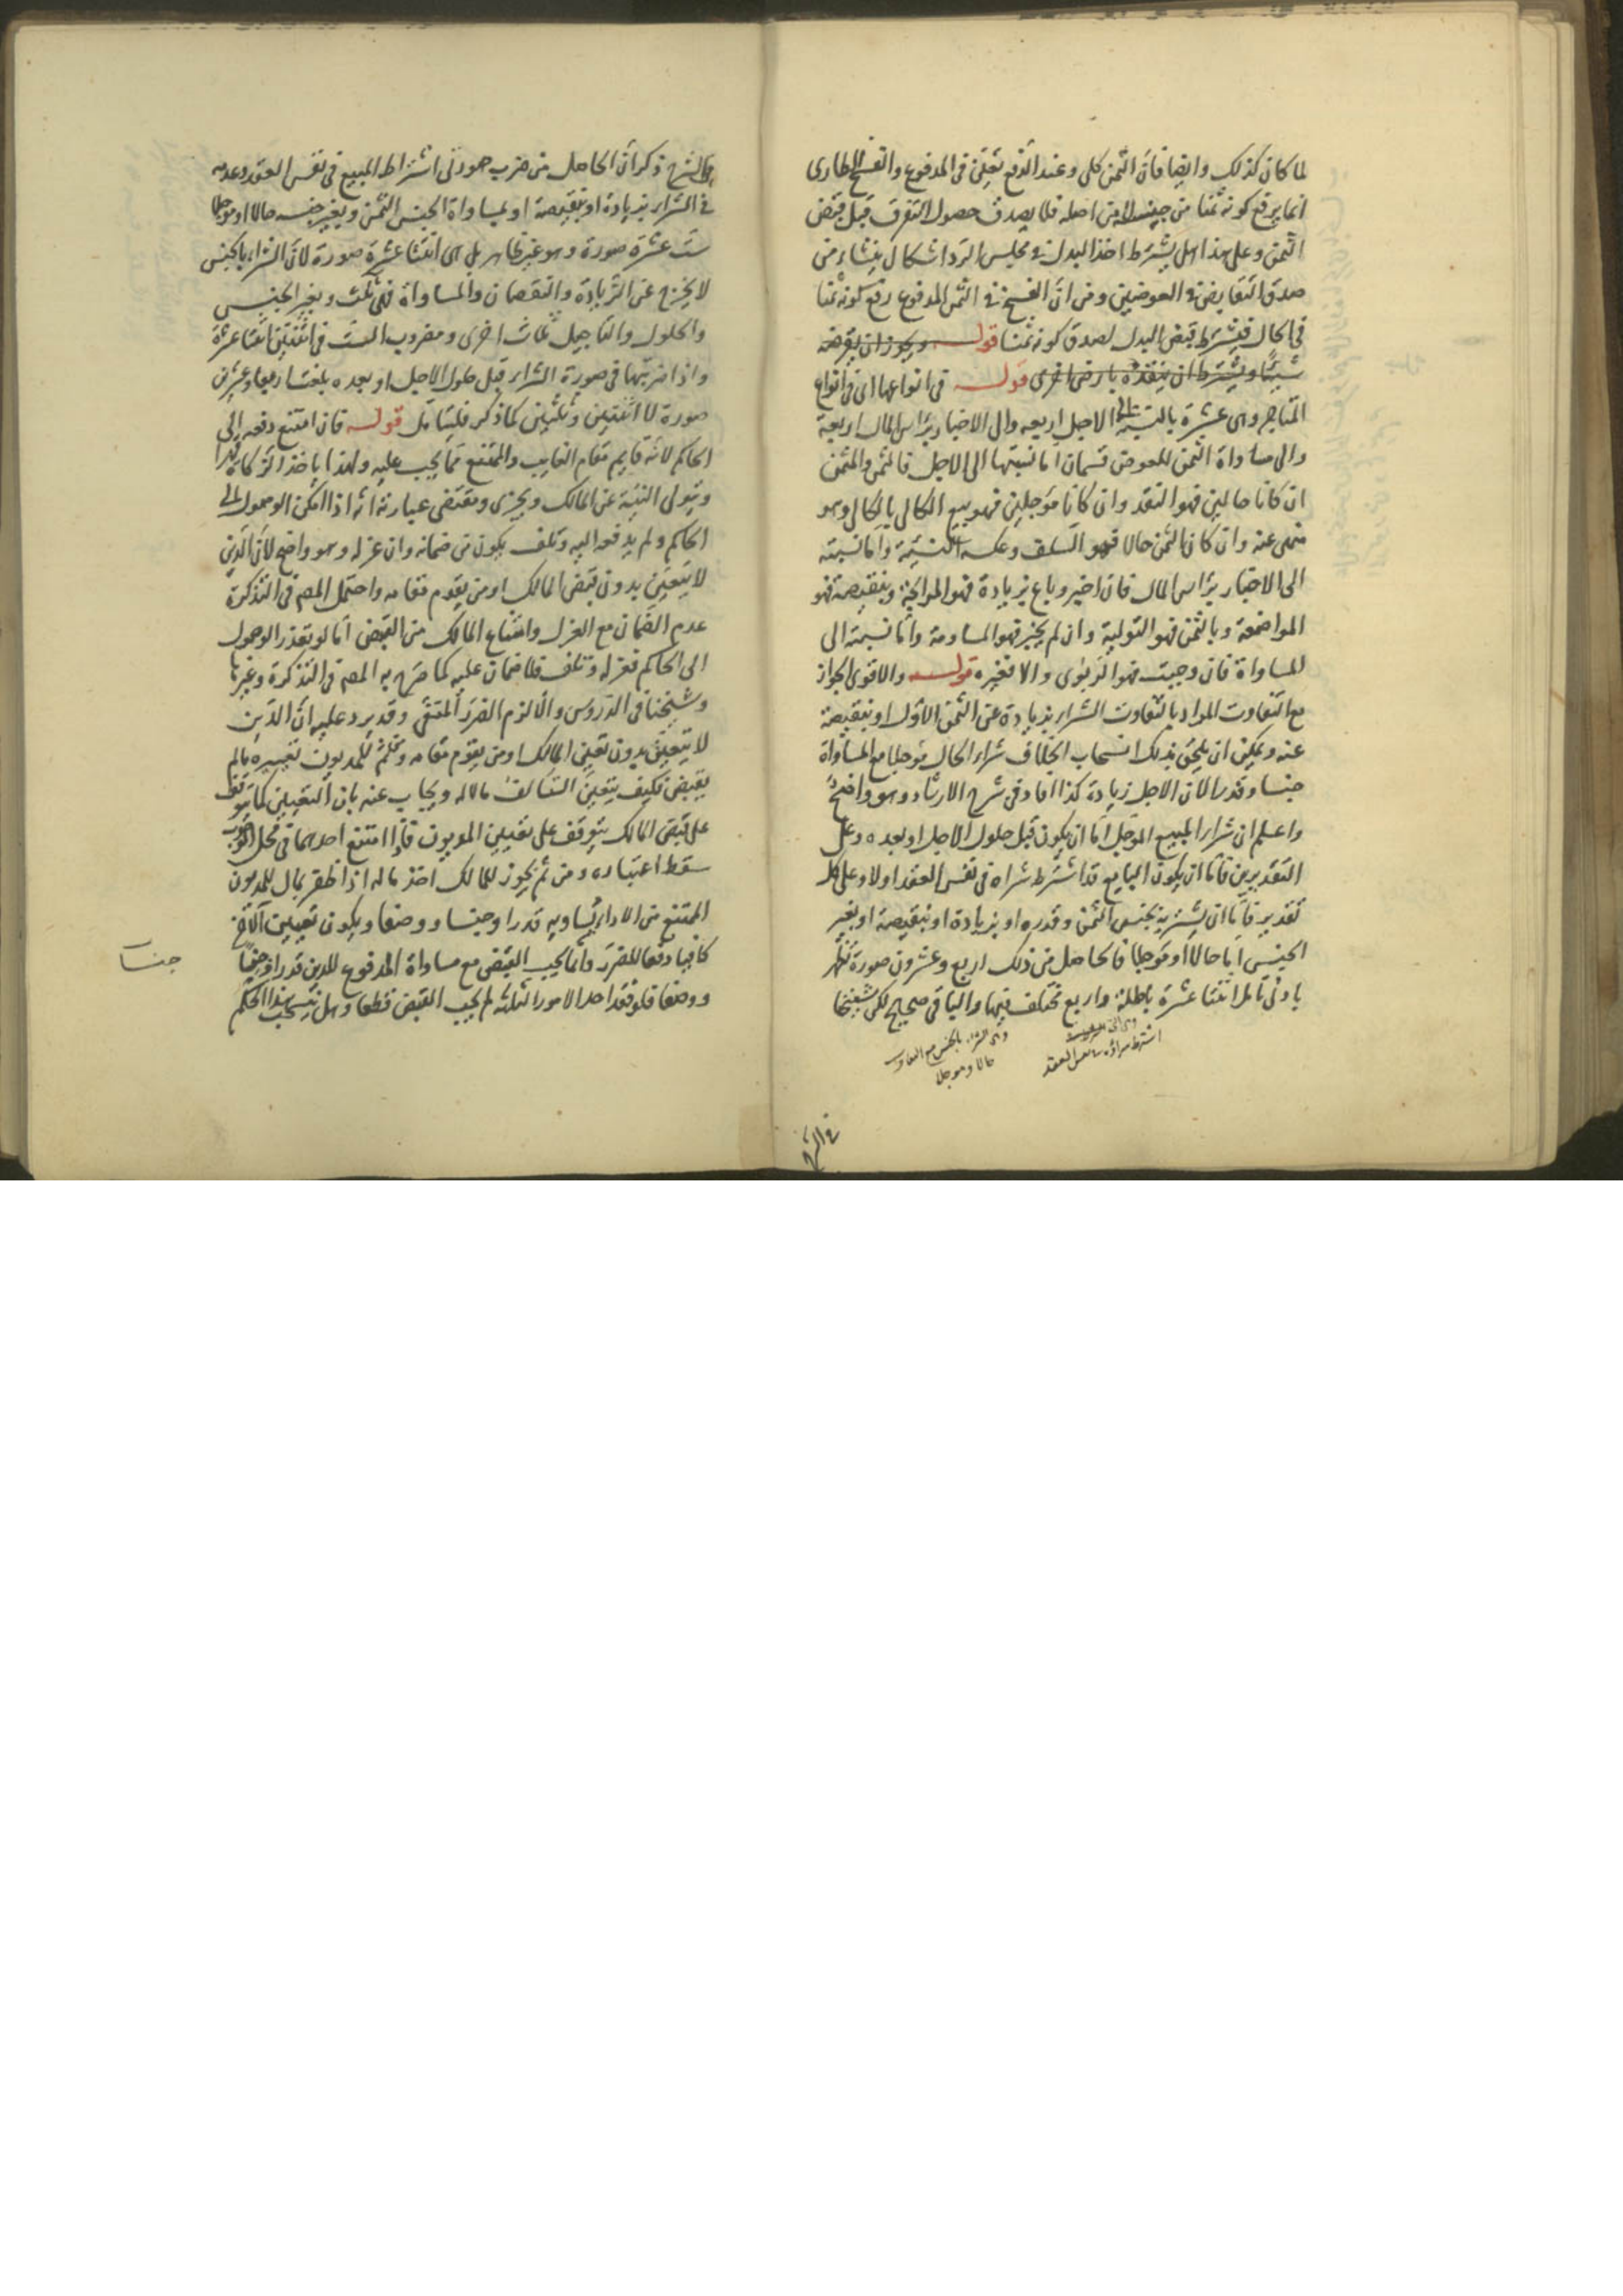 لما كان كذلك وايضا فان الثمن كلى وعند الدفع تعين فى المدفوع والفسخ الطارى
انما يرفع كونه ثمنا من حينه لا من اصله فلا يصدق حصول التفرق قبل قبض
الثمن وعلى هذا هل يشترط اخذ البدل فى مجلس الرد اشكال ينشاء من
صدق التقابض فى العوضين ومن ان الفسخ فى الثمن المدفوع رفع كونه ثمنا
فى الحال فيشترط قبض البدل لصدق كونه ثمنا قوله ويجوز ان يقرضه
شيئا ويشترط ان ينقده بارض اخرى قوله فى انواعها اى فى انواع
المتاجر وهى عشرة بالنسبة الى الاجل اربعه والى الاخبار براس المال اربعة
والى مساواة الثمن للعوض قسمان اما نسبتها الى الاجل فالثمن والمثمن
ان كانا حالين فهو النقد وان كانا مؤجلين فهو بيع الكالى بالكالى وهو
منهى عنه وان كان الثمن حالا فهو السلف وعكسه النسيئة واما نسبته
الى الاخبار براس المال فان اخبر وباع بزيادة فهو المرابحة وبنقيصة فهو
المواضعة وبالثمن فهو التولية وان لم يخبر فهو المساومة واما نسبته الى
المساواة فان وجبت فهو الربوى والا فغيره قوله والاقوى الجواز
مع التفاوت المراد بالتفاوت الشراء بزيادة عن الثمن الاول او بنقيصة
عنه ويمكن ان يلحق بذلك انسحاب الخلاف شراء الحال مؤجلا مع المساواة
جنسا وقدرا لان الاجل زيادة كذا افاد فى شرح الارشاد وهو واضح
واعلم ان شراء المبيع المؤجل اما ان يكون قبل حلول الاجل او بعده وعلى
التقديرين فاما ان يكون البايع قد اشترط شراه فى نفس العقد اولا وعلى كل
تقدير فاما ان يشتريه بجنس الثمن وقدره او بزيادة او بنقيصة او بغير
الجنس اما حالا او مؤجلا فالحاصل من ذلك اربع وعشرون صورة تظهر
بادنى تامل اثنتا عشرة باطلة واربع مختلف فيها والباقى صحيح لكن شيخنا
اشترط شراؤه فى نفس العقد
وهى الشراء بالجنس مع التفاوت
حالا ومؤجلا
فى الشرح
فى الشرح ذكر ان الحاصل من ضرب صورتى اشتراط المبيع فى نفس العقد وعدمه
فى الشراء بزيادة او بنقيصة او بمساواة الجنس الثمن وبغير جنسه حالا او مؤجلا
ست عشرة صورة وهو غير ظاهر بل هى اثنتا عشرة صورة لان الشراء بالجنس
لا يخرج عن الزيادة والنقصان والمساواة فهى ثلث وبغير الجنس
والحلول والتاجيل ثلاث اخرى ومضروب الست فى اثنتين اثنتا عشرة
واذا ضربتها فى صورة الشراء قبل حلول الاجل او بعده بلغت اربعا وعشرين
صورة لا اثنتين وثلثين كما ذكر فليتامل قوله فان امتنع دفعه الى
الحاكم لانه قايم مقام الغايب والممتنع مما يجب عليه ولهذا ياخذ الزكاة قهرا
ويتولى النية عن المالك ويجزى ومقتضى عبارته انه اذا امكن الوصول الى
الحاكم ولم يدفعه اليه وتلف يكون من ضمانه وان عزله وهو واضح لان الدين
لا يتعين بدون قبض المالك او من يقوم مقامه واحتمل المصـ فى التذكرة
عدم الضمان مع العزل وامتناع المالك من القبض اما لو تعذر الوصول
الى الحاكم فعزله وتلف فلا ضمان عليه كما صرح به المصـ فى التذكرة وغيرها
وشيخنا فى الدروس والا لزم الضرر المنفى وقد يرد عليه ان الدين
لا يتعين بدون تعين المالك او من يقوم مقامه ومن ثم للمديون تغييره ما لم
يقبض فكيف يتعين التالف مالا له ويجاب عنه بان التعيين كما يتوقف
على قبض المالك يتوقف على تعيين المديون فاذا امتنع احدهما فى محل الوجوب
سقط اعتباره ومن ثم يجوز للمالك اخذ ماله اذا ظفر بمال للمديون
الممتنع من الاداء يساويه قدرا وجنسا ووصفا ويكون تعيين الاخر
كافيا دفعا للضرر وانما يجب القبض مع مساواة المدفوع للدين قدرا وجنسا
ووصفا فلو فقد احد الامور الثلثة لم يجب القبض قطعا وهل ينسحب هذا الحكم
جنسا